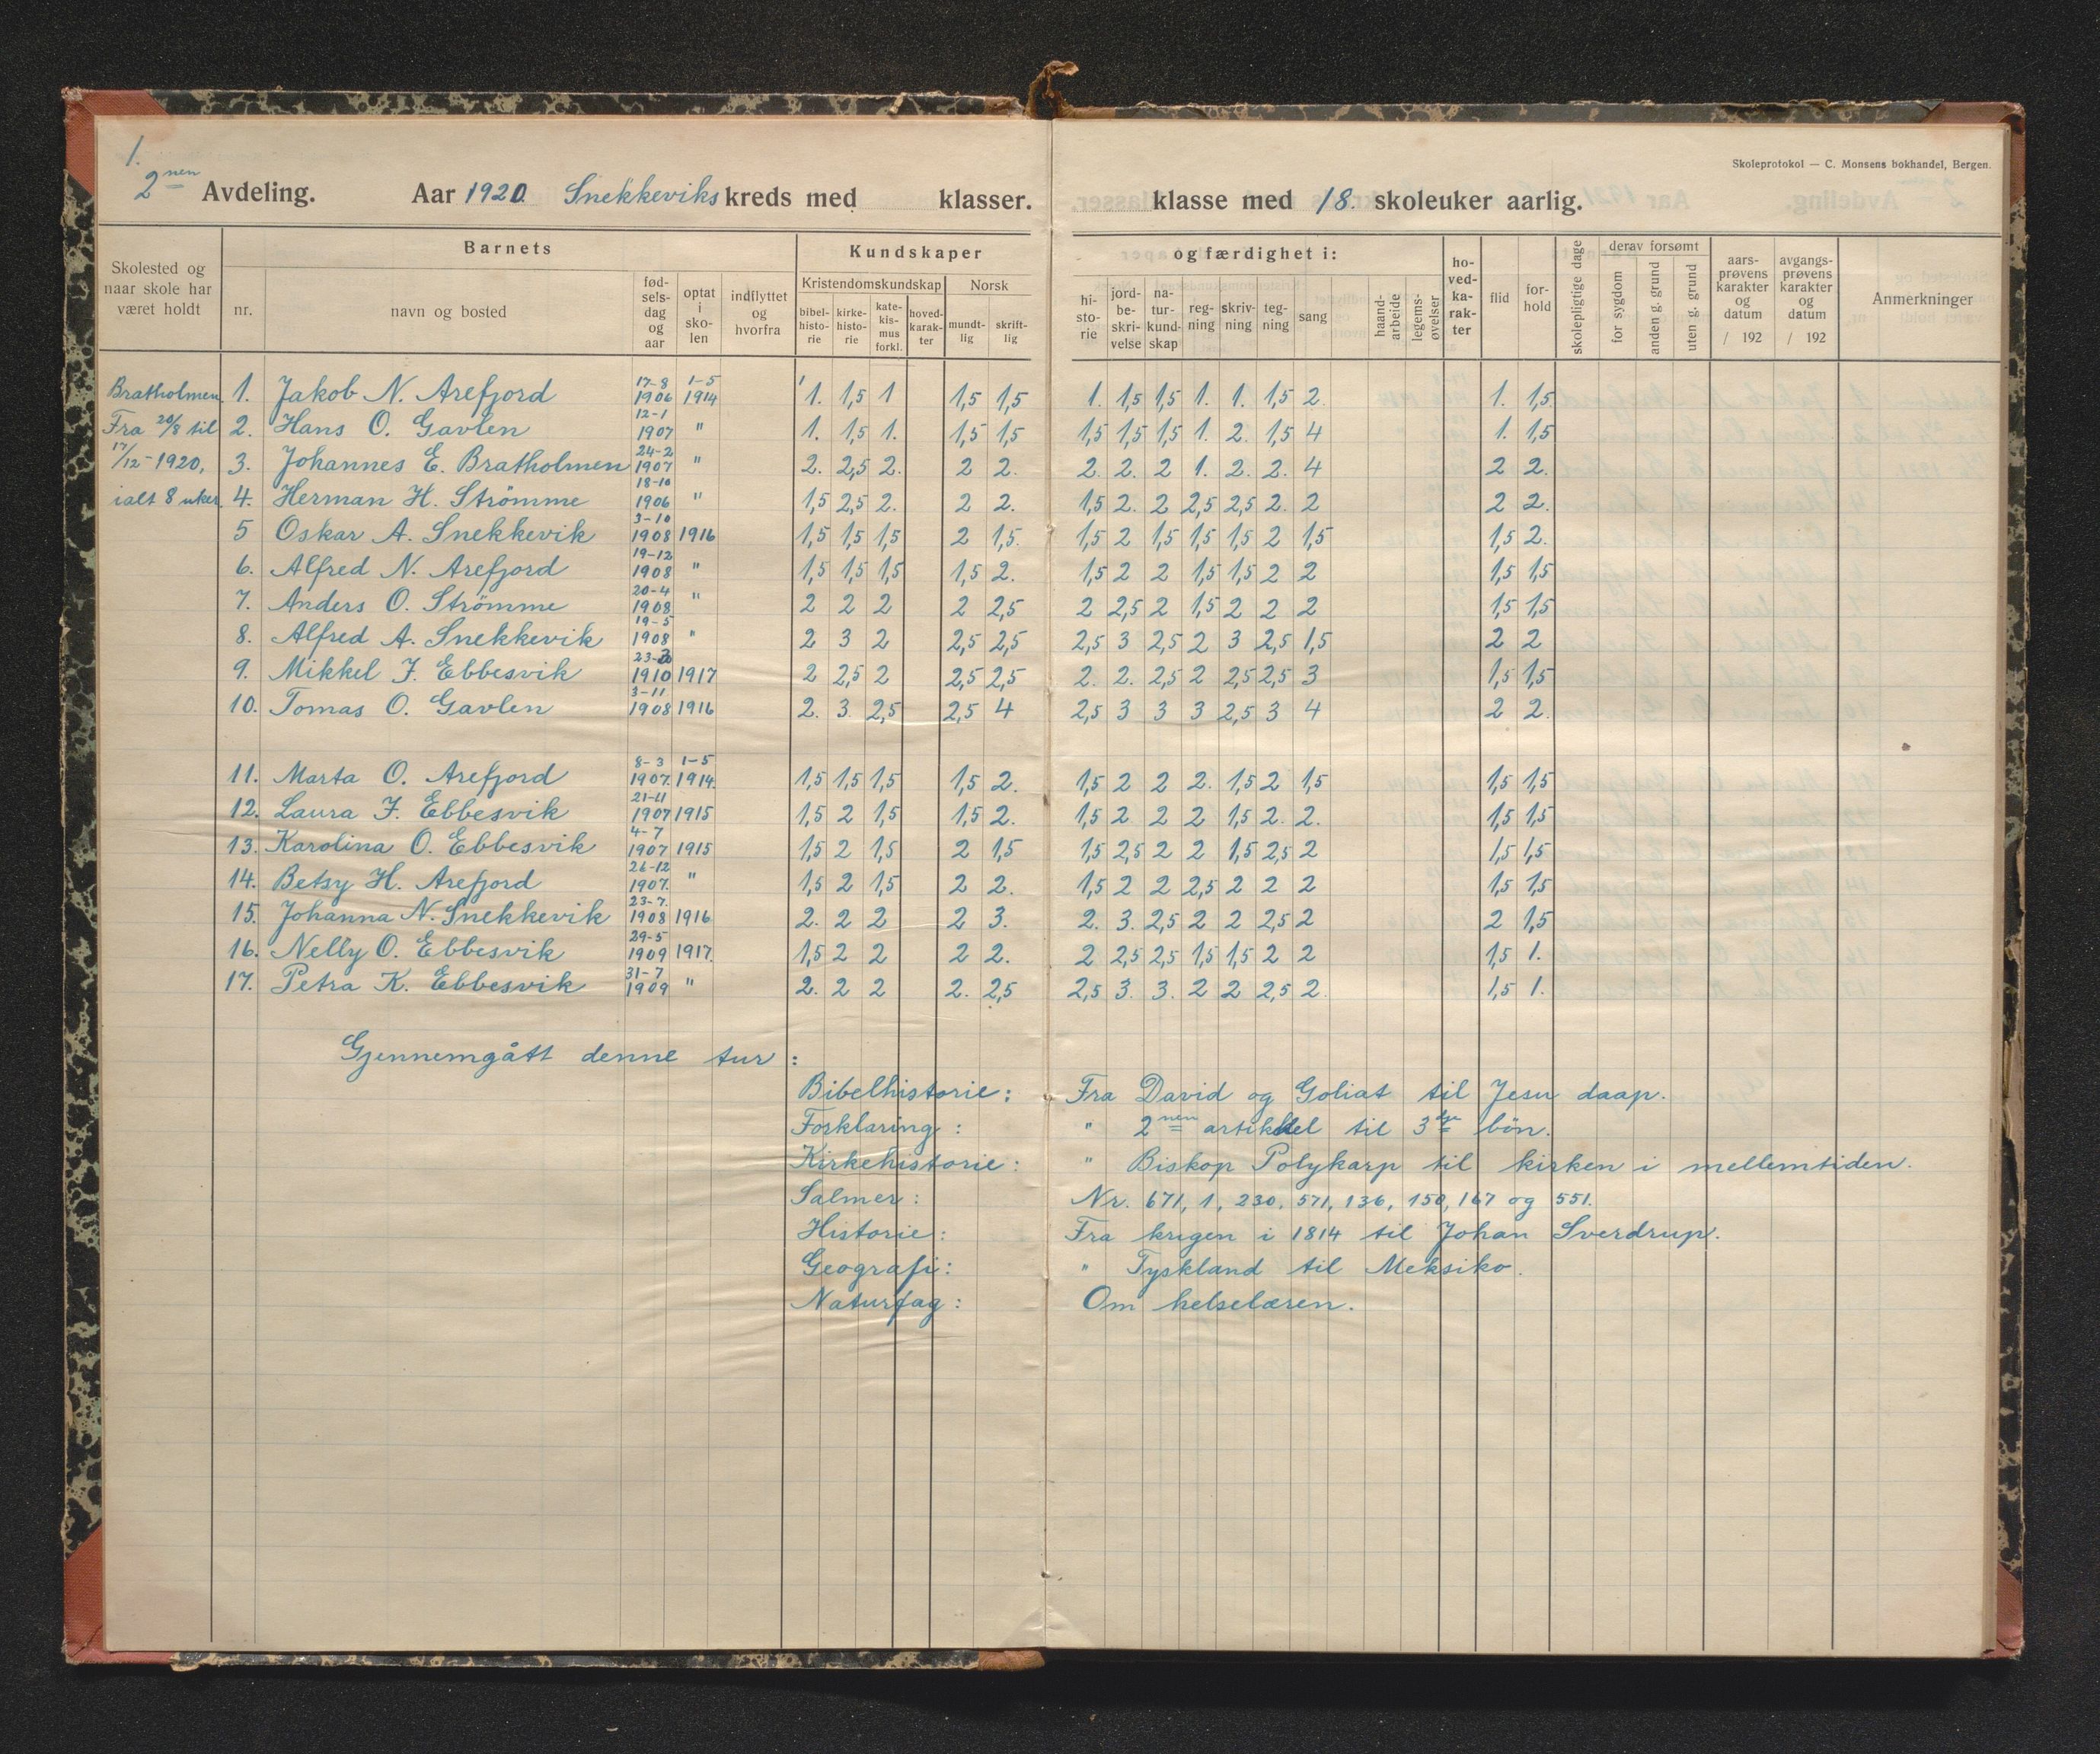 1.
2nen Avdeling. Aar 1920 Snekkeviks kreds med klasser. klasse med 18. skoleuker aarlig.
Skoleprotokol — C. Monsens bokhandel, Bergen.
Skolested og naar skole har været holdt
Barnets
nr. navn og bosted fød-sels-dag og aar optat i sko-len indflyttet og hvorfra
Kundskaper og færdighet i:
Kristendomskundskap Norsk
bibel-histo-rie kirke-histo-rie kate-kis-mus forkl. hoved-karak-ter mundt-lig skrift-lig
hi-sto-rie jord-be-skri-velse na-tur-kund-skap reg-ning skriv-ning teg-ning sang haand-arbeide legems-øvelser ho-ved-ka-rak-ter flid for-hold
skolepligtige dage derav forsømt for sygdom anden g. grund uten g. grund
aars-prøvens karakter og datum / 192 avgangs-prøvens karakter og datum / 192 Anmerkninger
Bratholmen 1. Jakob N. Arefjord 17-8 1906 1-5 1914 1. 1,5 1 1,5 1,5 1. 1,5 1,5 1. 1. 1,5 2. 1. 1,5
Fra 20/8 til 2. Hans O. Gavlen 12-1 1907 " 1. 1,5 1. 1,5 1,5 1,5 1,5 1,5 1. 2. 1,5 4 1. 1,5
17/12-1920, 3. Johannes E. Bratholmen 24-2 1907 " 2. 2,5 2. 2 2. 2. 2. 2 1. 2. 2. 4 2 2.
ialt 8 uker. 4. Herman H. Strömme 18-10 1906 " 1,5 2,5 2. 2 2. 1,5 2. 2 2,5 2,5 2. 2 2 2.
5 Oskar A. Snekkevik 3-10 1908 1916 1,5 1,5 1,5 2 1,5. 1,5 2 1,5 1,5 1,5 2 1,5 1,5 2.
6. Alfred N. Arefjord 19-12 1908 " 1,5 1,5 1,5 1,5 2. 1,5 2 2 1,5 1,5 2 2 1,5 1,5
7. Anders O. Strömme 20-4 1908 " 2 2 2 2 2,5 2 2,5 2 1,5 2 2 2 1,5 1,5
8. Alfred A. Snekkevik 19-5 1908 " 2 3 2 2,5 2,5 2,5 3 2,5 2 3 2,5 1,5 2 2
9. Mikkel J. Ebbesvik 1910 1917 2 2,5 2 2,5 2,5 2. 2. 2,5 2 2,5 2,5 3 1,5 1,5
10. Tomas O. Gavlen 3-11 1908 1916 2. 3. 2,5 2,5 4 2,5 3 3 3 2,5 3 4 2 2.
11. Marta O. Arefjord 8-3 1907. 1-5 1914. 1,5 1,5 1,5 1,5 2. 1,5 2 2 2. 1,5 2 1,5 1,5 1,5
12. Laura J. Ebbesvik 1907 1915 1,5 2 1,5 1,5 2. 1,5 2 2 2 1,5 2. 2. 1,5 1,5
13. Karolina O. Ebbesvik 4-7 1907 1915 1,5 2 1,5 2 1,5 1,5 2,5 2 2 1,5 2,5 2 1,5 1,5
14. Betsy H. Arefjord 26-12 1907. " 1,5 2 1,5 2 2. 1,5 2 2 2,5 2 2 2 1,5 1,5
15. Johanna N. Snekkevik 23-7. 1908 1916 2. 2 2 2 3. 2. 3. 2,5 2 2 2,5 2 2 1,5
16. Nelly O. Ebbesvik 29-5 1909 1917. 1,5 2 2 2 2. 2 2,5 2,5 1,5 1,5 2 2 1,5 1.
17. Petra K. Ebbesvik 31-7 1909 " 2. 2 2 2. 2,5 2,5 3. 3. 2 2 2,5 2. 1,5 1.
Gjennemgått denne tur :
Bibelhistorie : Fra David og Goliat til Jesu daap.
Forklaring : " 2nen artikkel til 3dje bön.
Kirkehistorie : " Biskop Polykarp til kirken i mellemtiden.
Salmer : Nr. 671, 1, 230, 571, 136, 150, 167 og 551.
Historie : Fra krigen i 1814 til Johan Sverdrup.
Geografi : " Tyskland til Meksiko.
Naturfag : Om helselæren.